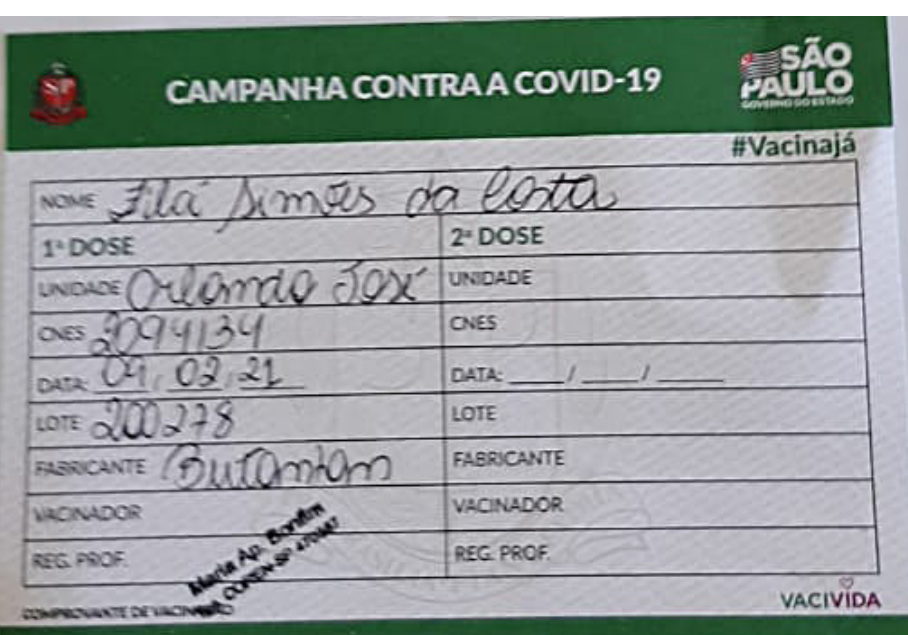 CAMPANHA CONTRA A COVID-19
SÃO PAULO
GOVERNO DO ESTADO
#Vacinajá
NOME Zilá Simões da Costa
1ª DOSE
2ª DOSE
UNIDADE Orlando José
UNIDADE
CNES 2094134
CNES
DATA: 09/02/21
DATA: ____/____/____
LOTE 200278
LOTE
FABRICANTE Butantan
FABRICANTE
VACINADOR
VACINADOR
REG. PROF.
REG. PROF.
Maria Ap. Bonfim
COREN-SP
COMPROVANTE DE VACINAÇÃO
VACIVIDA